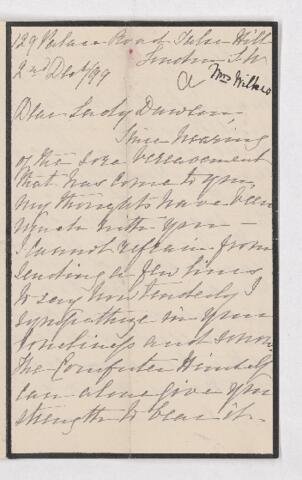 129 Palace Road Tulse Hill
London S.W
2nd Dec/99
a Mrs Wilkes
Dear Lady Dawson,
Since hearing
of the sore bereavement
that has come to you,
my thoughts have been
much with you —
I cannot refrain from
sending a few lines
to say how tenderly I
sympathize in your
loneliness and sorrow.
The Comforter Himself
can alone give you
strength to bear it.